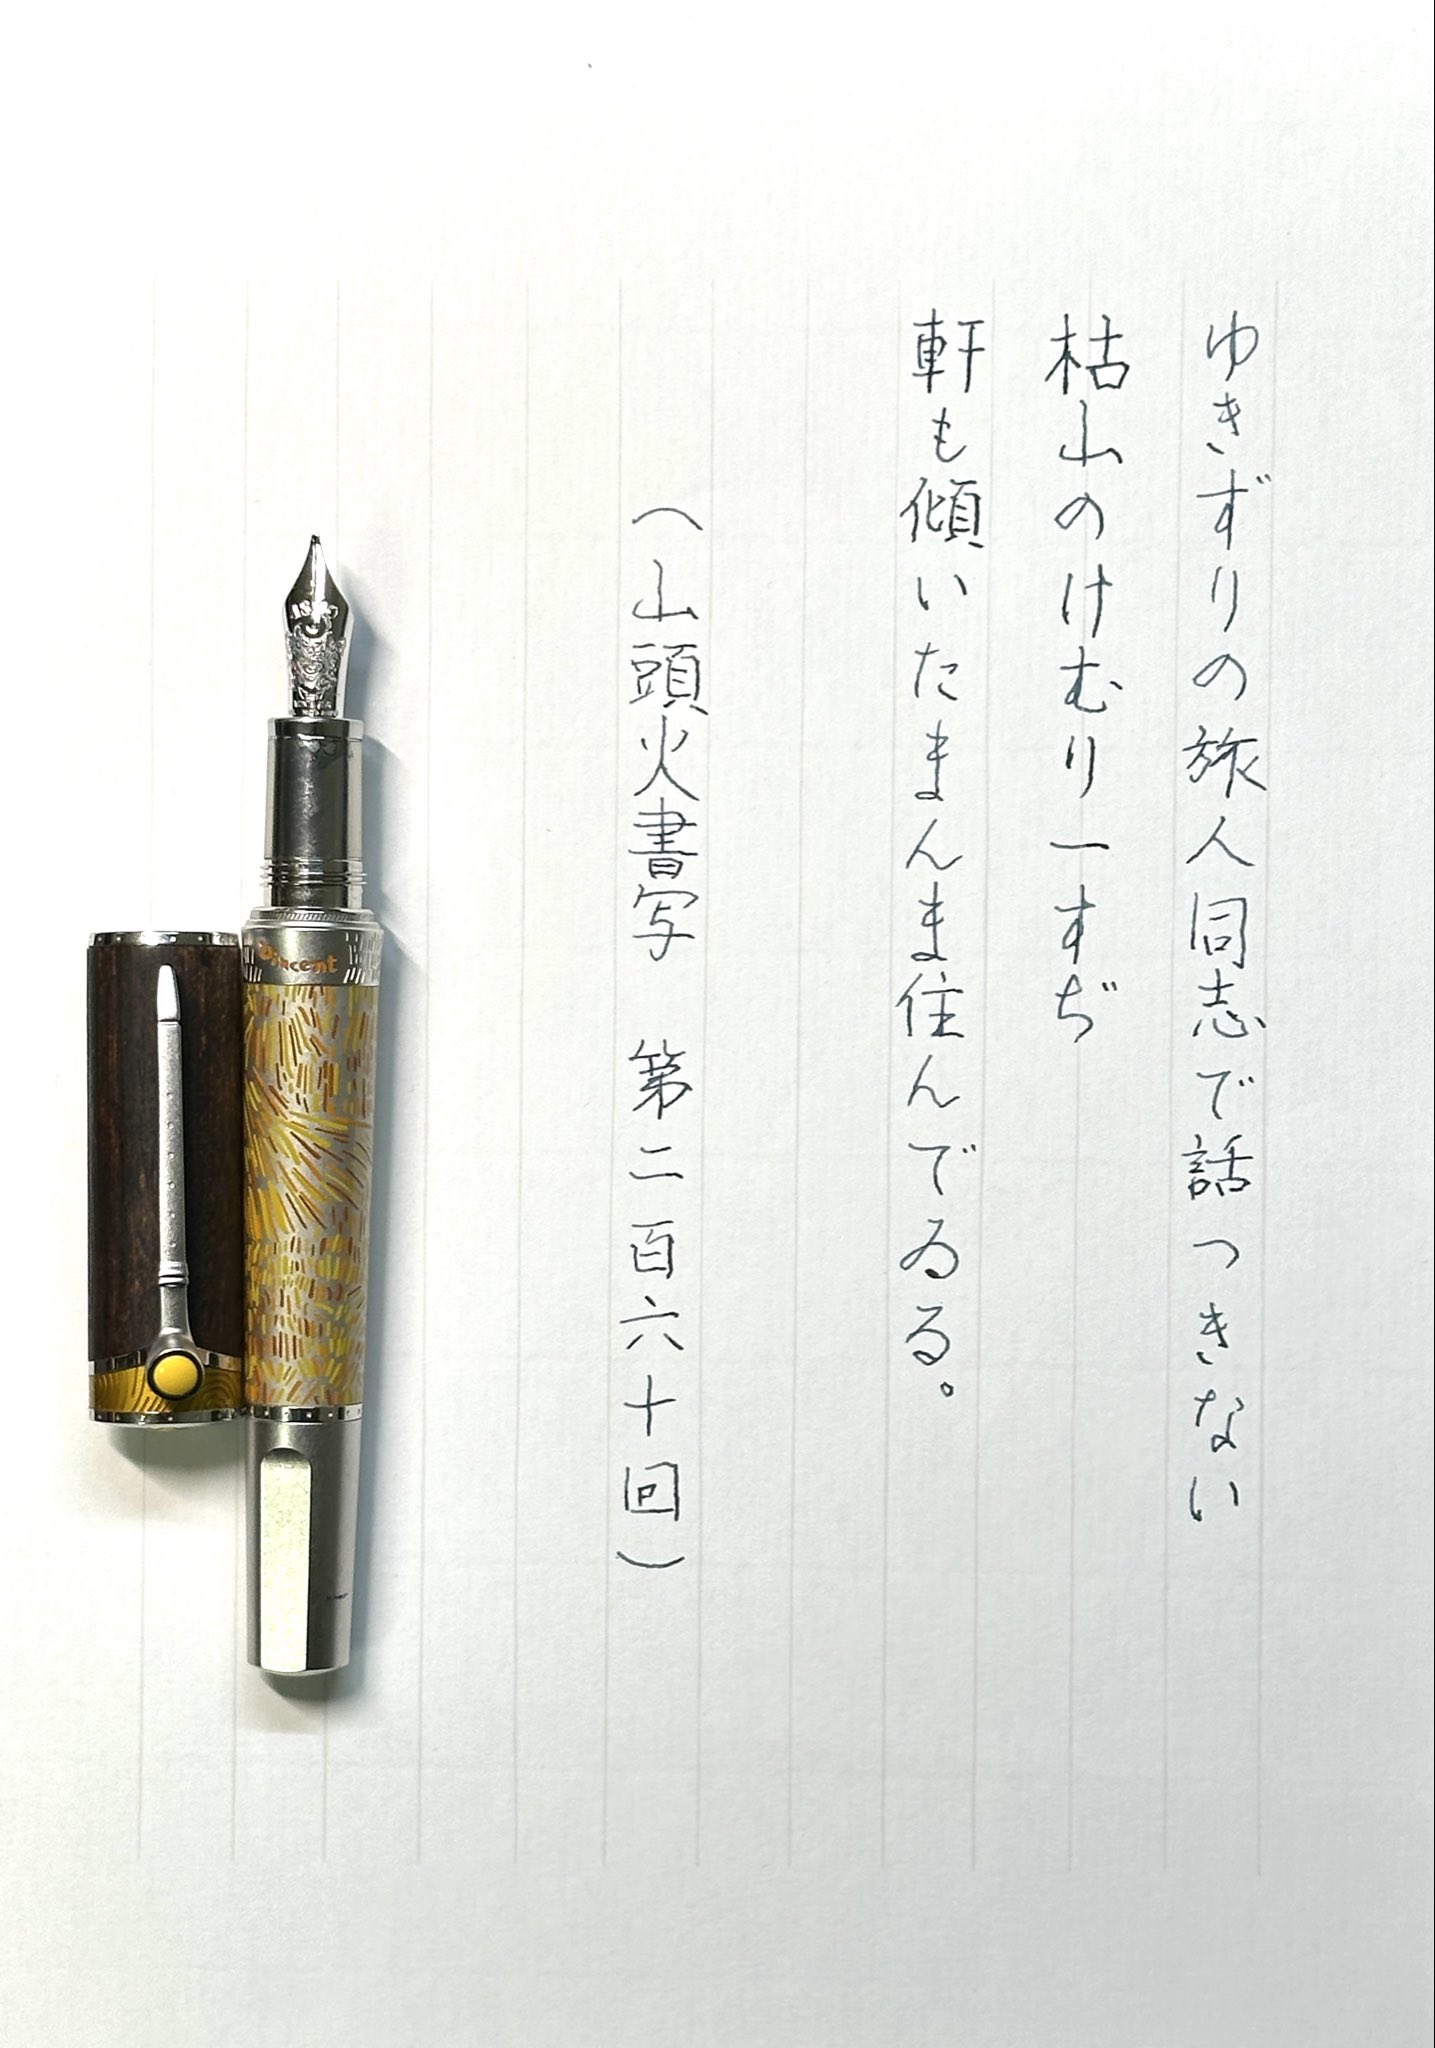 ゆきずりの旅人同志で話つきない
枯山のけむり一すぢ
軒も傾いたまんま住んでゐる。
(山頭火書写 第二百六十回)
Vincent